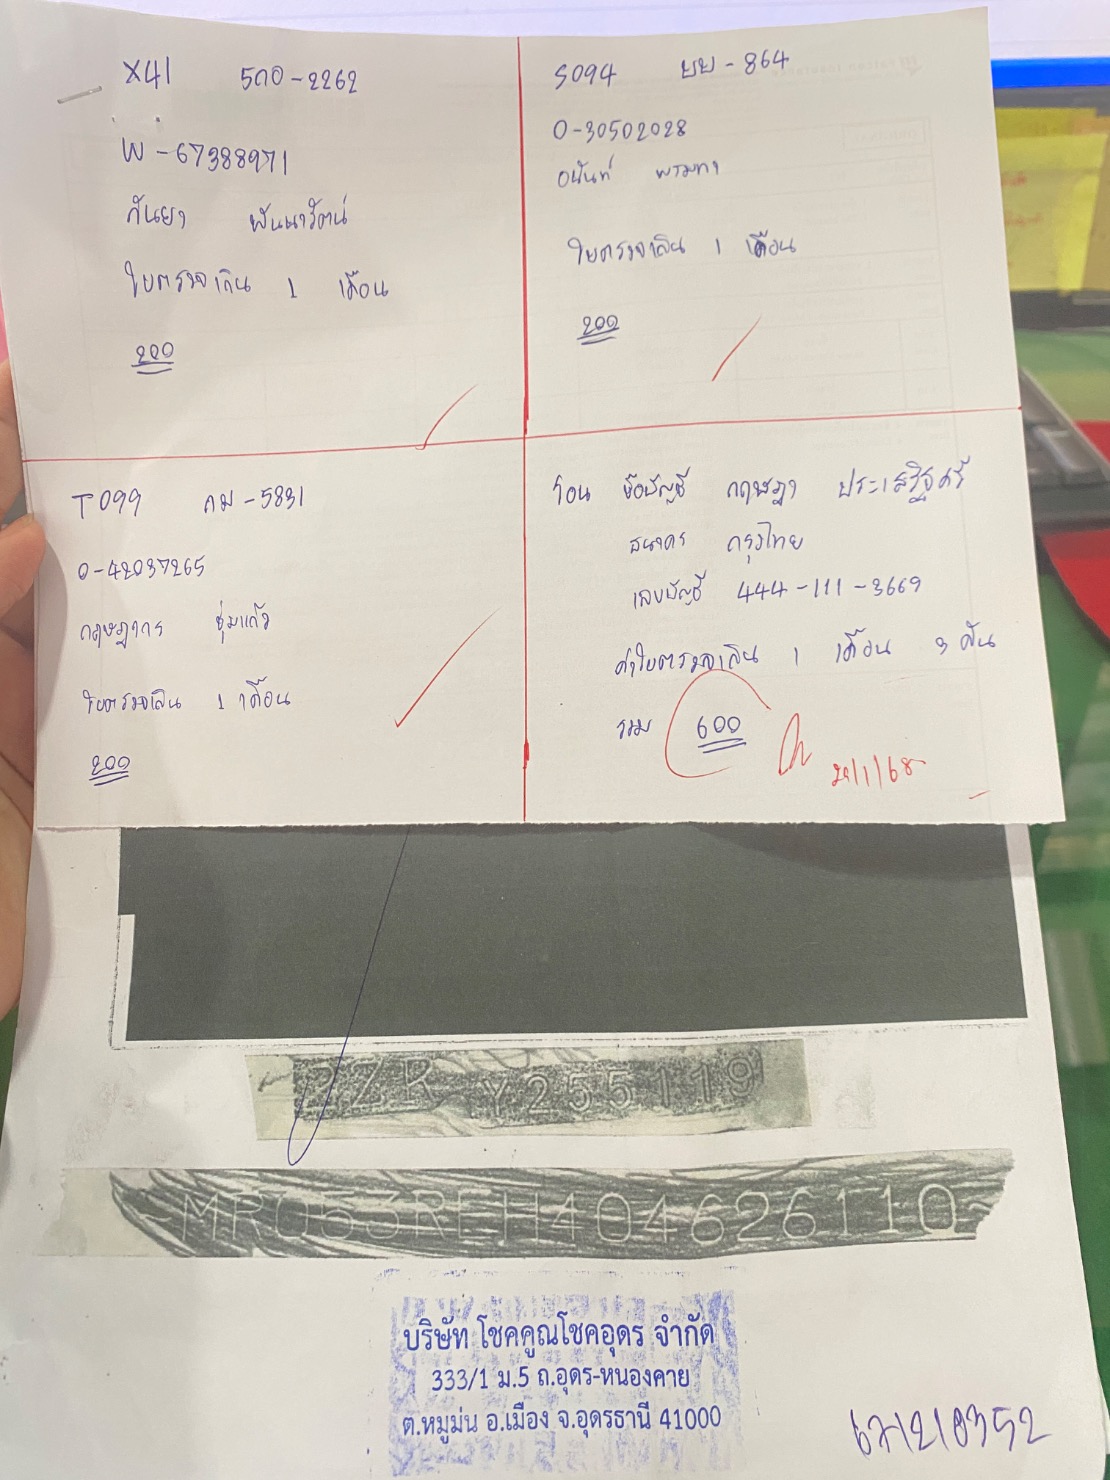 X41 5กอ-2262
W-67388971
กันยา พันนารัตน์
ใบตรวจเกิน 1 เดือน
200
S094 บบ-864
0-30502028
อนันท์ พรมทา
ใบตรวจเกิน 1 เดือน
200
T099 กม-5831
0-42037265
กฤษฎากร ชุ่มแก้ว
ใบตรวจเกิน 1 เดือน
200
โอน ชื่อบัญชี กฤษฎา ประเสริฐศรี
ธนาคาร กรุงไทย
เลขบัญชี 444-111-3669
ค่าใบตรวจเกิน 1 เดือน 3 คัน
รวม 600
2ZR Y255119
MR053REH404626110
บริษัท โชคคูณโชคอุดร จำกัด
333/1 ม.5 ถ.อุดร-หนองคาย
ต.หมูม่น อ.เมือง จ.อุดรธานี 41000